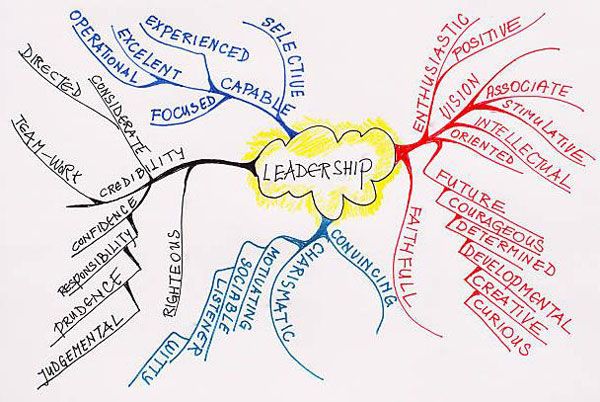 LEADERSHIP
SELECTIVE
CAPABLE
EXPERIENCED
EXCELENT
OPERATIONAL
FOCUSED
ENTHUSIASTIC
POSITIVE
VISION
ASSOCIATE
STIMULATIVE
INTELLECTUAL
ORIENTED
FUTURE
COURAGEOUS
DETERMINED
DEVELOPMENTAL
CREATIVE
CURIOUS
FAITHFULL
CONVINCING
CHARISMATIC
MOTIVATING
SOCIABLE
LISTENER
WITTY
CREDIBILITY
CONSIDERATE
DIRECTED
TEAM-WORK
RIGHTEOUS
CONFIDENCE
RESPONSIBILITY
PRUDENCE
JUDGEMENTAL